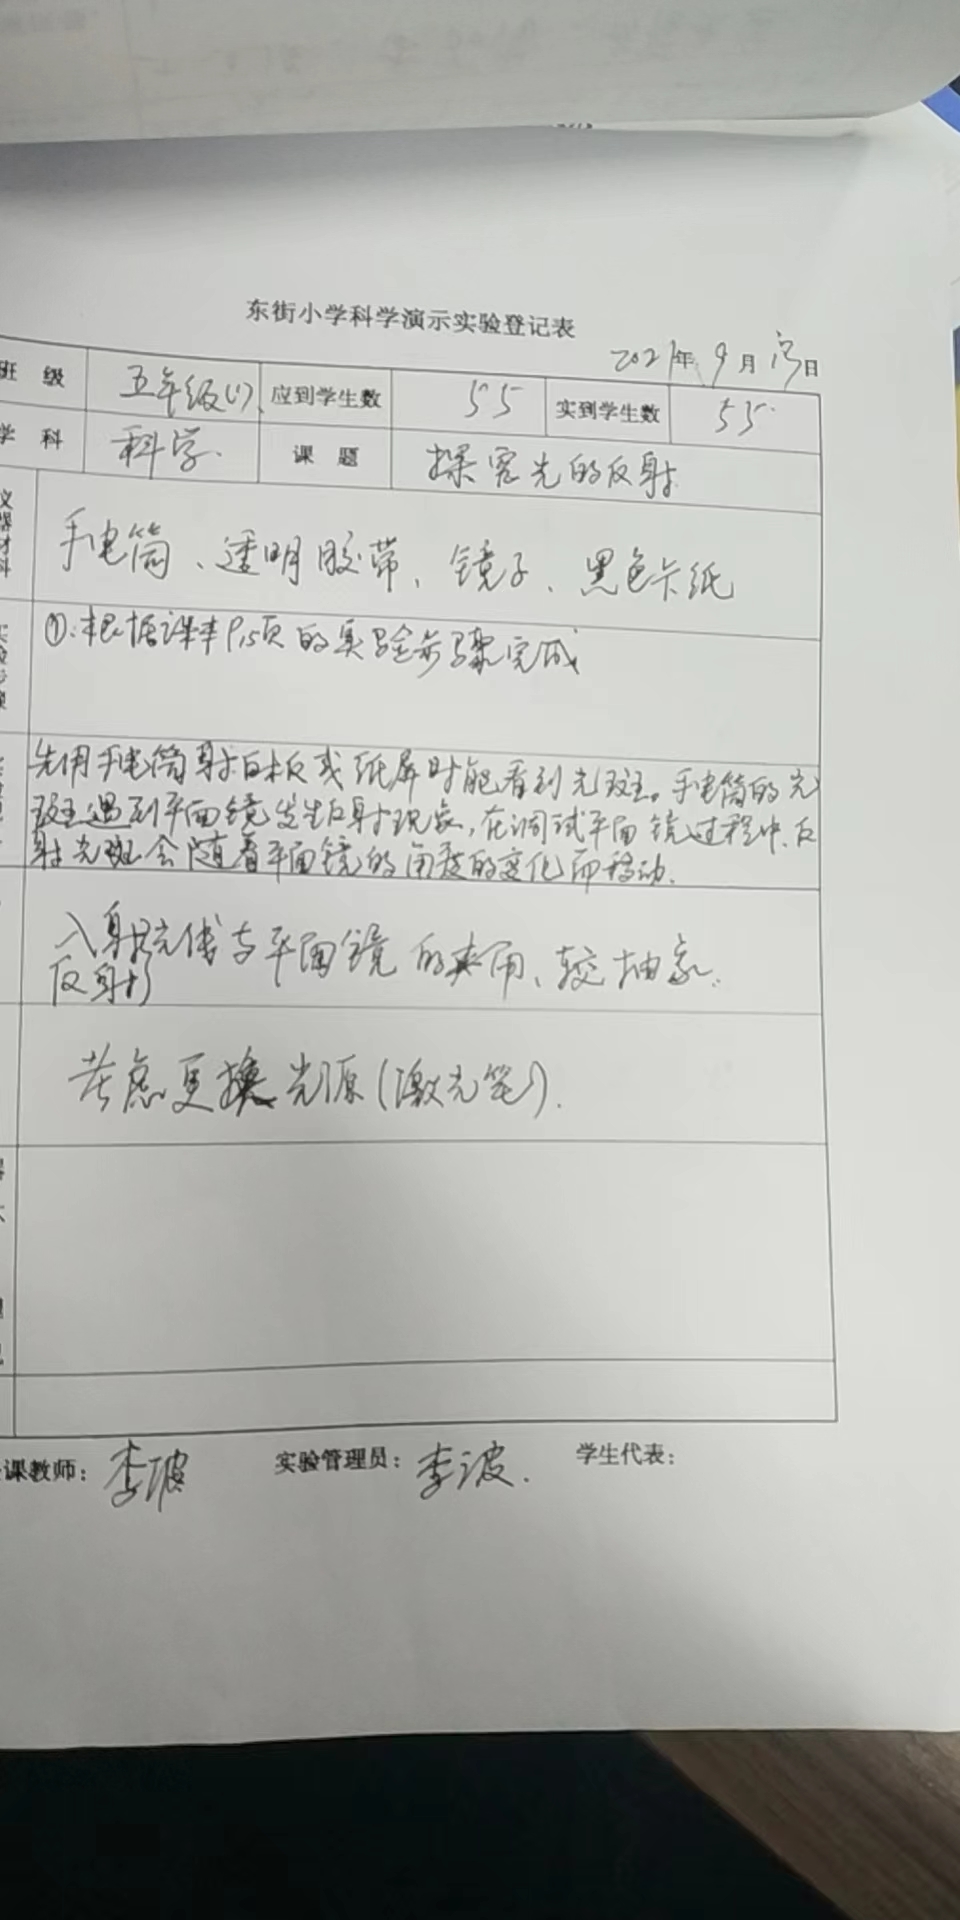 东街小学科学演示实验登记表
2021年 9 月 日
班 级 五年级(1) 应到学生数 55 实到学生数 55
学 科 科学 课 题 探究光的反射
仪器材料 手电筒、透明胶带、镜子、黑色卡纸
实验步骤 ①.根据课本P15页的实验步骤完成
先用手电筒射白板或纸屏时能看到光斑。手电筒的光
斑遇到平面镜发生反射现象,在调试平面镜过程中,反
射光斑会随着平面镜的角度的变化而移动.
入射光线与平面镜的夹角、较抽象.
反射
考虑更换光源(激光笔).
课教师: 李波 实验管理员: 李波. 学生代表: